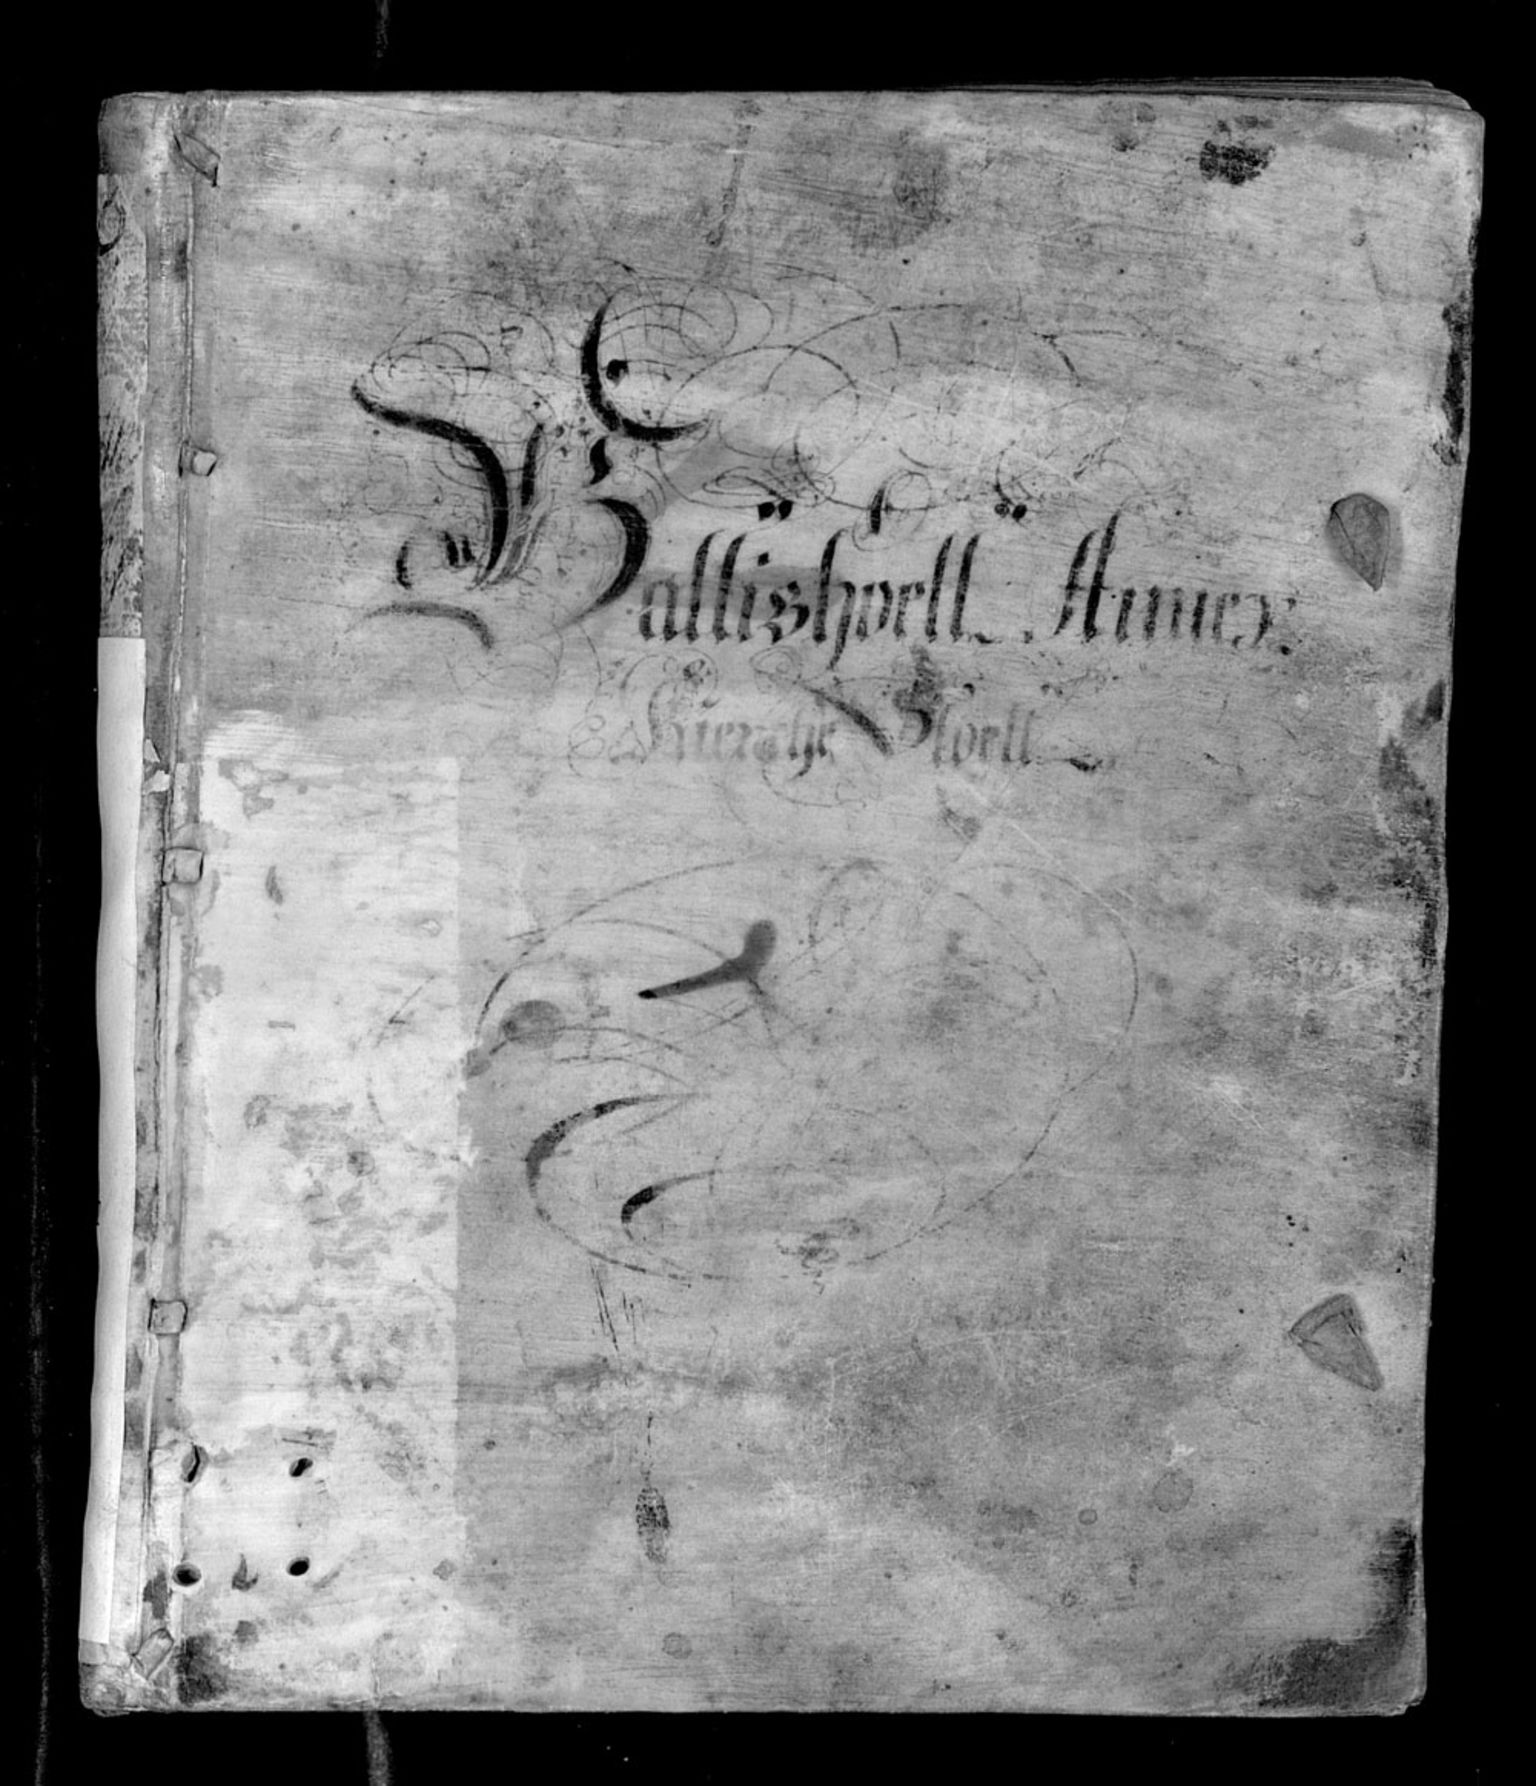 Ballishoell Annex
Kierche Stoell